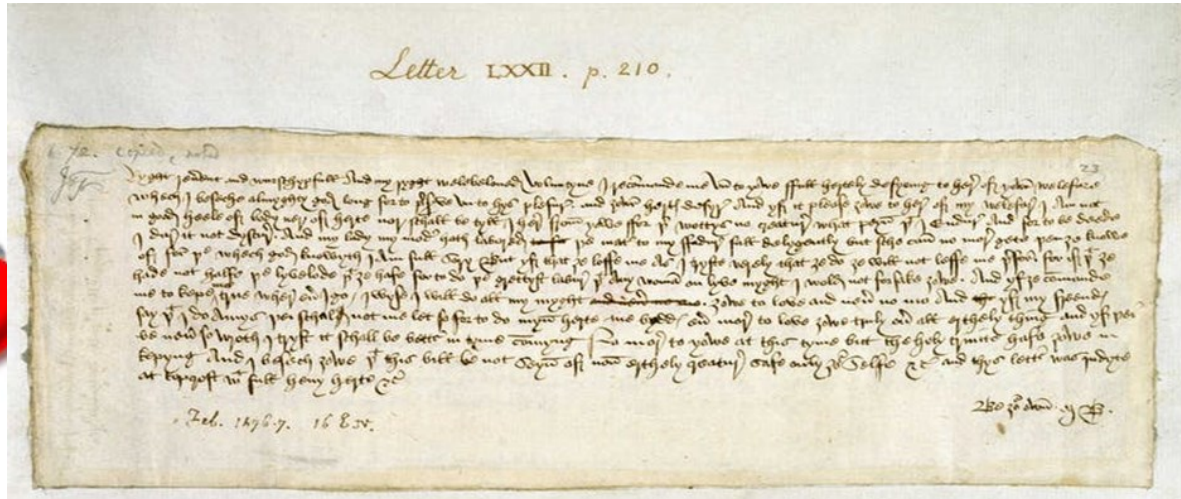 Letter LXXII. p. 210.
copied,
23
Ryght reverent and wurschypfull And my ryght welebeloved Voluntyne I recommande me un to yowe ffull hertely desyring to here of yowr welefare
whech I beseche almyghty god long for to preserve un to hys plesure and yowr hertys desyre And yf it please yowe to here of my welefare I Am not
in good heele of body ner of herte nor schall be tyll I here from yowe ffor þer wottys no creature what peyn þat I Endure And for to be deede
I dare it not dyscure And my lady my moder hath labored þe mater to my ffadure full delygently but sche can no more gete þen ye knowe
of for þe whech god knowyth I Am full Sory But yf that ye loffe me As I tryste verely that ye do ye will not leffe me þerfor for if þat ye
hade not halfe þe lyvelode þat ye hafe for to do þe grettyst labure þat Any woman on lyve myght I wold not forsake yowe And yf ye commande
me to kepe me true wherever I go I wyse I will do all my myght yowe to love and never no mo And yf my freendys
say þat I do Amys þei schal not me let so for to do myn herte me bydds ever more to love yowe truly over all erthely thing and yf þei
be never so wroth I tryst it schall be better in tyme commyng No more to yowe at this tyme but the holy trinite hafe yowe in
kepyng And I besech yowe þat this bill be not Seyn of non erthely creature safe only your Selffe &c And thys letter was indyte
at Topcroft wt full hevy herte &c
Be your own M B.
Feb. 1476-7. 16 E. IV.